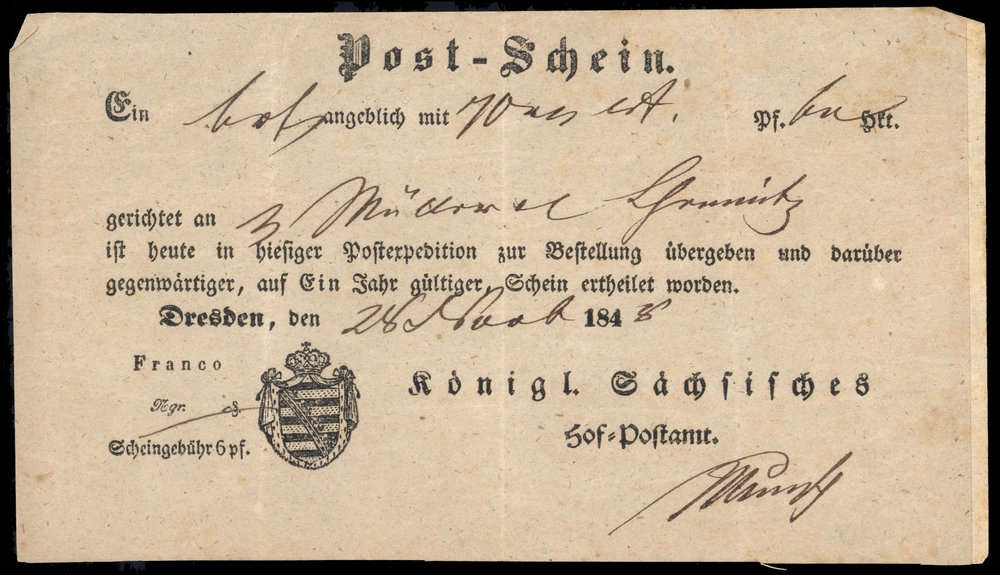 Post-Schein.
Ein angeblich mit 70 Pf. Hkt.
gerichtet an Müller Chemnitz
ist heute in hiesiger Postexpedition zur Bestellung übergeben und darüber
gegenwärtiger, auf Ein Jahr gültiger, Schein ertheilet worden.
Dresden, den 28 1848
Franco
Königl. Sächsisches
Ngr. ₰.
Hof-Postamt.
Scheingebühr 6 pf.